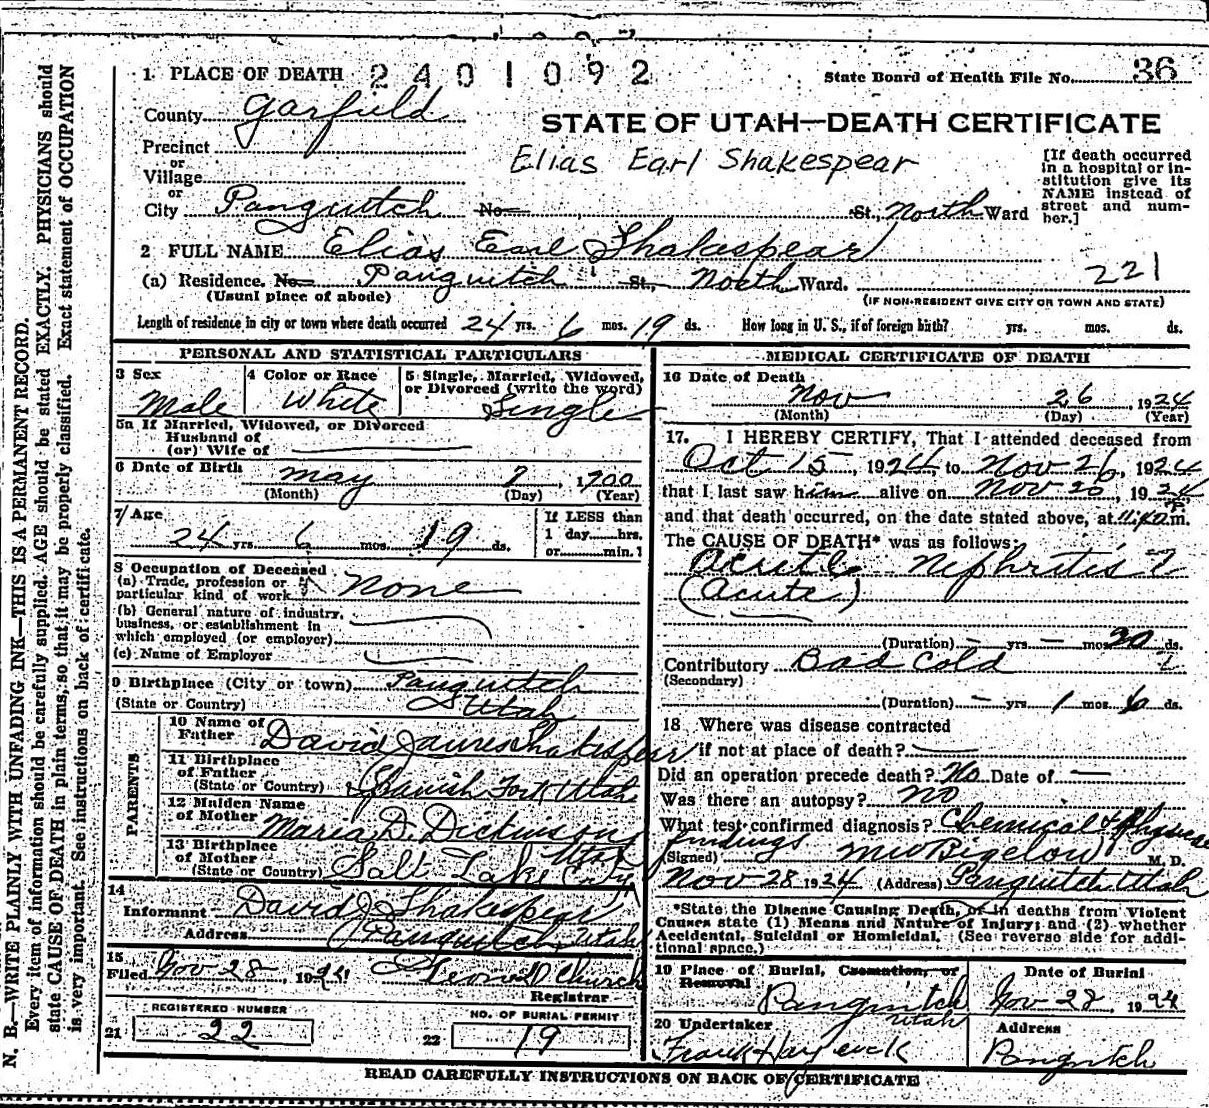 1 PLACE OF DEATH 2401092
State Board of Health File No. 36
County Garfield
STATE OF UTAH—DEATH CERTIFICATE
Precinct
Elias Earl Shakespear
or
Village
or
City Panguitch No St., North Ward
[If death occurred
in a hospital or in-
stitution give its
NAME instead of
street and num-
ber.]
2 FULL NAME Elias Earl Shakespear
221
(a) Residence. No. Panguitch St., North Ward.
(Usual place of abode)
(IF NON-RESIDENT GIVE CITY OR TOWN AND STATE)
Length of residence in city or town where death occurred 24 yrs. 6 mos. 19 ds. How long in U. S., if of foreign birth? yrs. mos. ds.
PERSONAL AND STATISTICAL PARTICULARS
3 Sex
Male
4 Color or Race
White
5 Single, Married, Widowed,
or Divorced (write the word)
Single
5a If Married, Widowed, or Divorced
Husband of
(or) Wife of
6 Date of Birth
May 7, 1900
(Month) (Day) (Year)
7 Age
24 yrs. 6 mos. 19 ds.
If LESS than
1 day hrs.
or min.
8 Occupation of Deceased
(a) Trade, profession or
particular kind of work None
(b) General nature of industry,
business, or establishment in
which employed (or employer)
(c) Name of Employer
9 Birthplace (City or town) Panguitch
(State or Country) Utah
PARENTS
10 Name of
Father David James Shakespear
11 Birthplace
of Father
(State or Country) Spanish Fork Utah
12 Maiden Name
of Mother Maria D. Dickinson
13 Birthplace
of Mother
(State or Country) Salt Lake City Utah
14
Informant David J Shakespear
Address Panguitch, Utah
15
Filed Nov 28, 1924 Church
Registrar
REGISTERED NUMBER
21 22
NO. OF BURIAL PERMIT
22 19
MEDICAL CERTIFICATE OF DEATH
16 Date of Death
Nov 26, 1924
(Month) (Day) (Year)
17. I HEREBY CERTIFY, That I attended deceased from
Oct 15, 1924, to Nov 26, 1924
that I last saw him alive on Nov 26, 1924
and that death occurred, on the date stated above, at 11:40 P m.
The CAUSE OF DEATH* was as follows:
Acute Nephritis ?
(Acute)
(Duration) — yrs — mos 30 ds.
Contributory Bad Cold
(Secondary)
(Duration) — yrs 1 mos 6 ds.
18 Where was disease contracted
if not at place of death?
Did an operation precede death? No Date of —
Was there an autopsy? no
What test confirmed diagnosis? Chemical & Physical
findings
(Signed) MW Bigelow M. D.
Nov 28 1924 (Address) Panguitch Utah
*State the Disease Causing Death, or in deaths from Violent
Causes state (1) Means and Nature of Injury; and (2) whether
Accidental, Suicidal or Homicidal. (See reverse side for addi-
tional space.)
19 Place of Burial, Cremation, or
Removal
Panguitch
Utah
Date of Burial
Nov 28, 1924
20 Undertaker
Frank Haycock
Address
Panguitch
READ CAREFULLY INSTRUCTIONS ON BACK OF CERTIFICATE
N. B.—WRITE PLAINLY WITH UNFADING INK—THIS IS A PERMANENT RECORD.
Every item of information should be carefully supplied. AGE should be stated EXACTLY. PHYSICIANS should
state CAUSE OF DEATH in plain terms, so that it may be properly classified. Exact statement of OCCUPATION
is very important. See instructions on back of certificate.